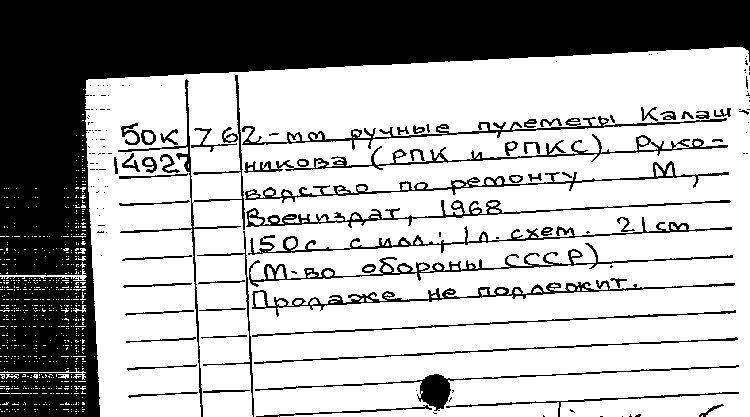 50к 7,62-мм ручные пулеметы Калаш-
14927 никова (РПК и РПКС). Руко-
водство по ремонту. М.,
Воениздат, 1968
150с. с илл.; 1л. схем. 21см
(М-во обороны СССР).
Продаже не подлежит.